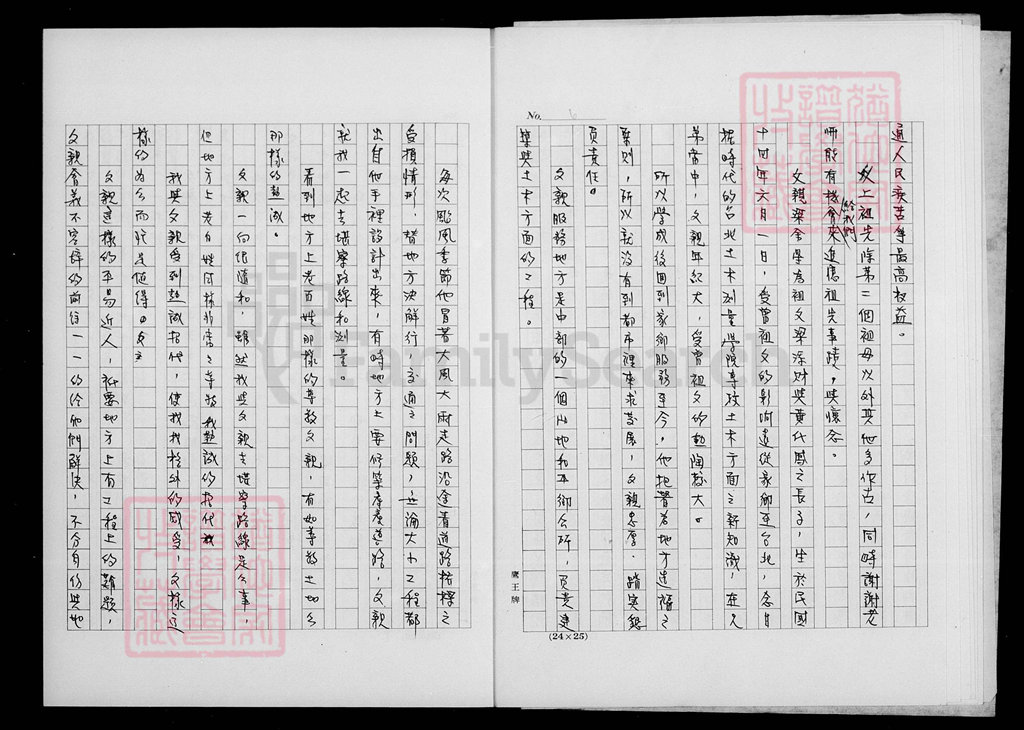 No. 6
道人民疾苦等最高权益。
以上祖先除第二個祖母以外其他多作古,同時謝謝老
師能有机會來給我們追憶祖先事蹟,與懷念。
父親梁金 為祖父梁深財與黃代鳳之長子,生於民國
十四年六月一日,受曾祖父的影响遠從家鄉至台北,念日
據時代的台北土木測量學院專攻土木方面之新知識,在兄
弟當中,父親年紀大,受曾祖父的熏陶較大。
所以學成後回到家鄉服務至今,他把著為地方造福之
原則,所以就沒有到都市裡來求發展,父親忠厚、踏实懇
負責任。
父親服務地方是中部的一個山地和平鄉公所,負責建
築與土木方面的工程。
鷹王牌
(24×25)
每次颱風季節他冒著大風大雨走路沿途看道路橋樑之
受損情形,替地方決解行,交通之問題,無論大小工程都
出自他手裡設計出來,有時地方上要修築產業道路,父親
就我一起去堪察路線和測量。
看到地方上老百姓那樣的尊敬父親,有如尊敬土地公
那樣的熱誠。
父親一向很隨和,雖然我與父親去堪察路線是公事,
但地方上老百姓同樣非常之尊敬我熱誠的招代我
我與父親受到熱誠招代,使我我格外的感受,父樣這
樣的為公而忙是值得。父
父親這樣的平易近人,祇要地方上有工程上的難題,
父親會義不容辭的前往一一的給他們解決,不分身份與地
FamilySearch